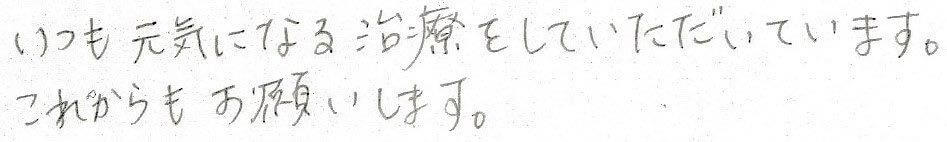 いつも元気になる治療をしていただいています。
これからもお願いします。